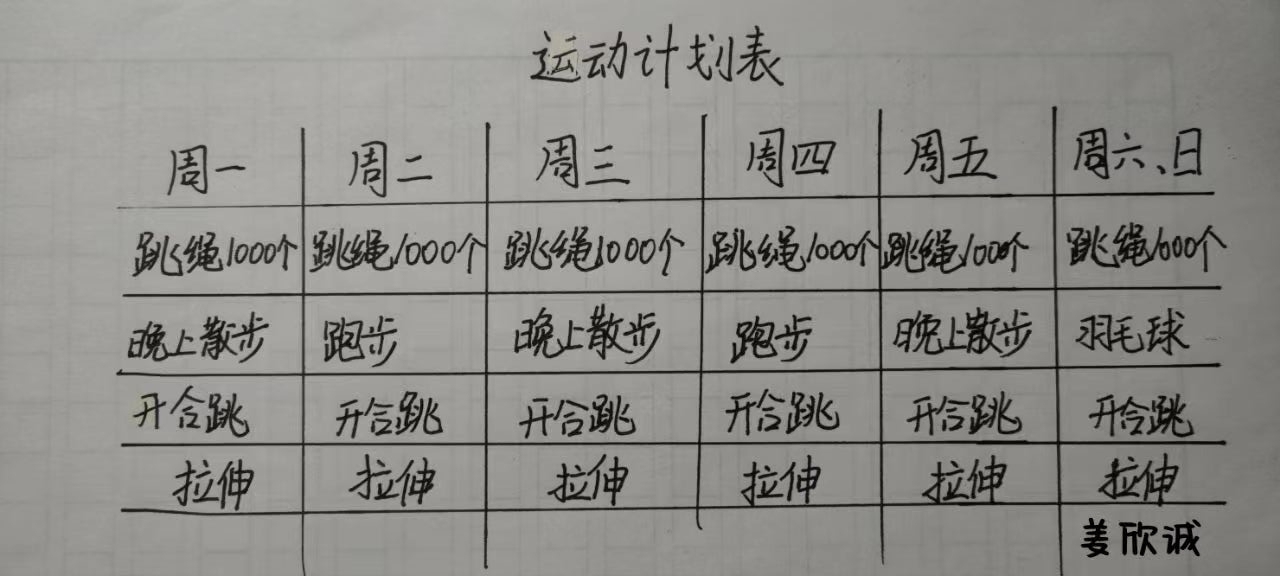 运动计划表
周一 周二 周三 周四 周五 周六、日
跳绳1000个 跳绳1000个 跳绳1000个 跳绳1000个 跳绳1000个 跳绳1000个
晚上散步 跑步 晚上散步 跑步 晚上散步 羽毛球
开合跳 开合跳 开合跳 开合跳 开合跳 开合跳
拉伸 拉伸 拉伸 拉伸 拉伸 拉伸
姜欣诚